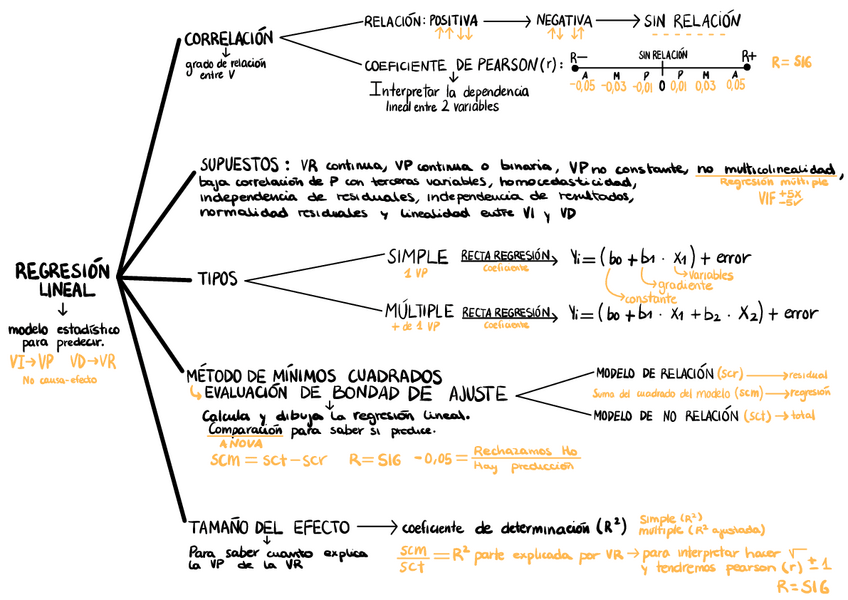 REGRESIÓN
LINEAL
↓
modelo estadístico
para predecir.
VI→VP VD→VR
No causa-efecto
CORRELACIÓN
↓
grado de relación
entre V
RELACIÓN: POSITIVA → NEGATIVA → SIN RELACIÓN
↑↑ ↓↓ ↑↓ ↓↑
COEFICIENTE DE PEARSON (r):
↓
Interpretar la dependencia
lineal entre 2 variables
R- SIN RELACIÓN R+
A M P P M A
-0,05 -0,03 -0,01 0 0,01 0,03 0,05
R= SIG
SUPUESTOS: VR continua, VP continua o binaria, VP no constante, no multicolinealidad,
baja correlación de P con terceras variables, homocedasticidad,
Regresión múltiple
independencia de residuales, independencia de resultados,
VIF +5X
-5✓
normalidad residuales y linealidad entre VI y VD
TIPOS
SIMPLE RECTA REGRESIÓN → Yi = (b0 + b1 · X1) + error
1 VP coeficiente
variables
gradiente
constante
MÚLTIPLE RECTA REGRESIÓN → Yi = (b0 + b1 · X1 + b2 · X2) + error
+ de 1 VP coeficiente
MÉTODO DE MÍNIMOS CUADRADOS
EVALUACIÓN DE BONDAD DE AJUSTE
↓
Calcula y dibuja la regresión lineal.
Comparación para saber si produce.
ANOVA
SCM = SCT - SCR R= SIG -0,05 = Rechazamos Ho
Hay predicción
MODELO DE RELACIÓN (scr) → residual
Suma del cuadrado del modelo (scm) → regresión
MODELO DE NO RELACIÓN (sct) → total
TAMAÑO DEL EFECTO → coeficiente de determinación (R²)
Simple (R²)
multiple (R² ajustada)
↓
Para saber cuanto explica
la VP de la VR
SCM
SCT
= R² parte explicada por VR → para interpretar hacer √
y tendremos pearson (r) ± 1
R= SIG